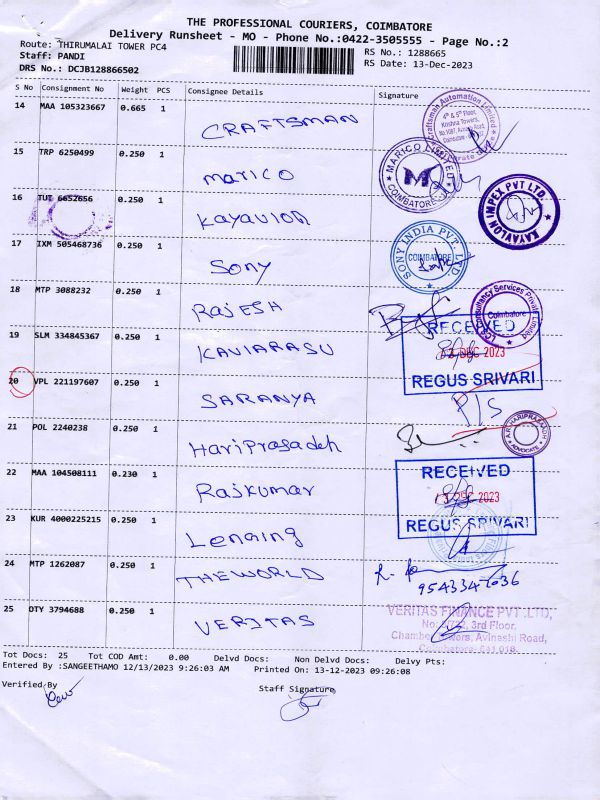 THE PROFESSIONAL COURIERS, COIMBATORE
Delivery Runsheet - MO - Phone No.:0422-3505555 - Page No.:2
Route: THIRUMALAI TOWER PC4
RS No.: 1288665
Staff: PANDI
RS Date: 13-Dec-2023
DRS No.: DCJB128866502
S No Consignment No Weight PCS Consignee Details Signature
14 MAA 105323667 0.665 1 CRAFTSMAN
Craftsman Automation Limited
4th & 5th Floor,
15 TRP 6250499 0.250 1 MARICO
MARICO LIMITED
M
COIMBATORE
16 TUT 6652656 0.250 1
KAYAVLON IMPEX PVT LTD.
17 IXM 505468736 0.250 1 Sony
SONY INDIA PVT. LTD.
COIMBATORE
18 MTP 3088232 0.250 1 RAJESH
Consultancy Services Private Limited
Coimbatore
RECEIVED
19 SLM 334845367 0.250 1 KAVIARASU
13 DEC 2023
REGUS SRIVARI
20 VPL 221197607 0.250 1 SARANYA
P/S
21 POL 2240238 0.250 1 HariPrasadeh
ADVOCATE
22 MAA 104508111 0.230 1 Rajkumar
RECEIVED
13 DEC 2023
REGUS SRIVARI
23 KUR 4000225215 0.250 1 Lenzing
24 MTP 1262087 0.250 1 THEWORLD
25 OTY 3794688 0.250 1 VERITAS
VERITAS FINANCE PVT .LTD,
3rd Floor,
Avinashi Road,
Tot Docs: 25 Tot COD Amt: 0.00 Delvd Docs: Non Delvd Docs: Delvy Pts:
Entered By :SANGEETHAMO 12/13/2023 9:26:03 AM Printed On: 13-12-2023 09:26:08
Verified By
Staff Signature